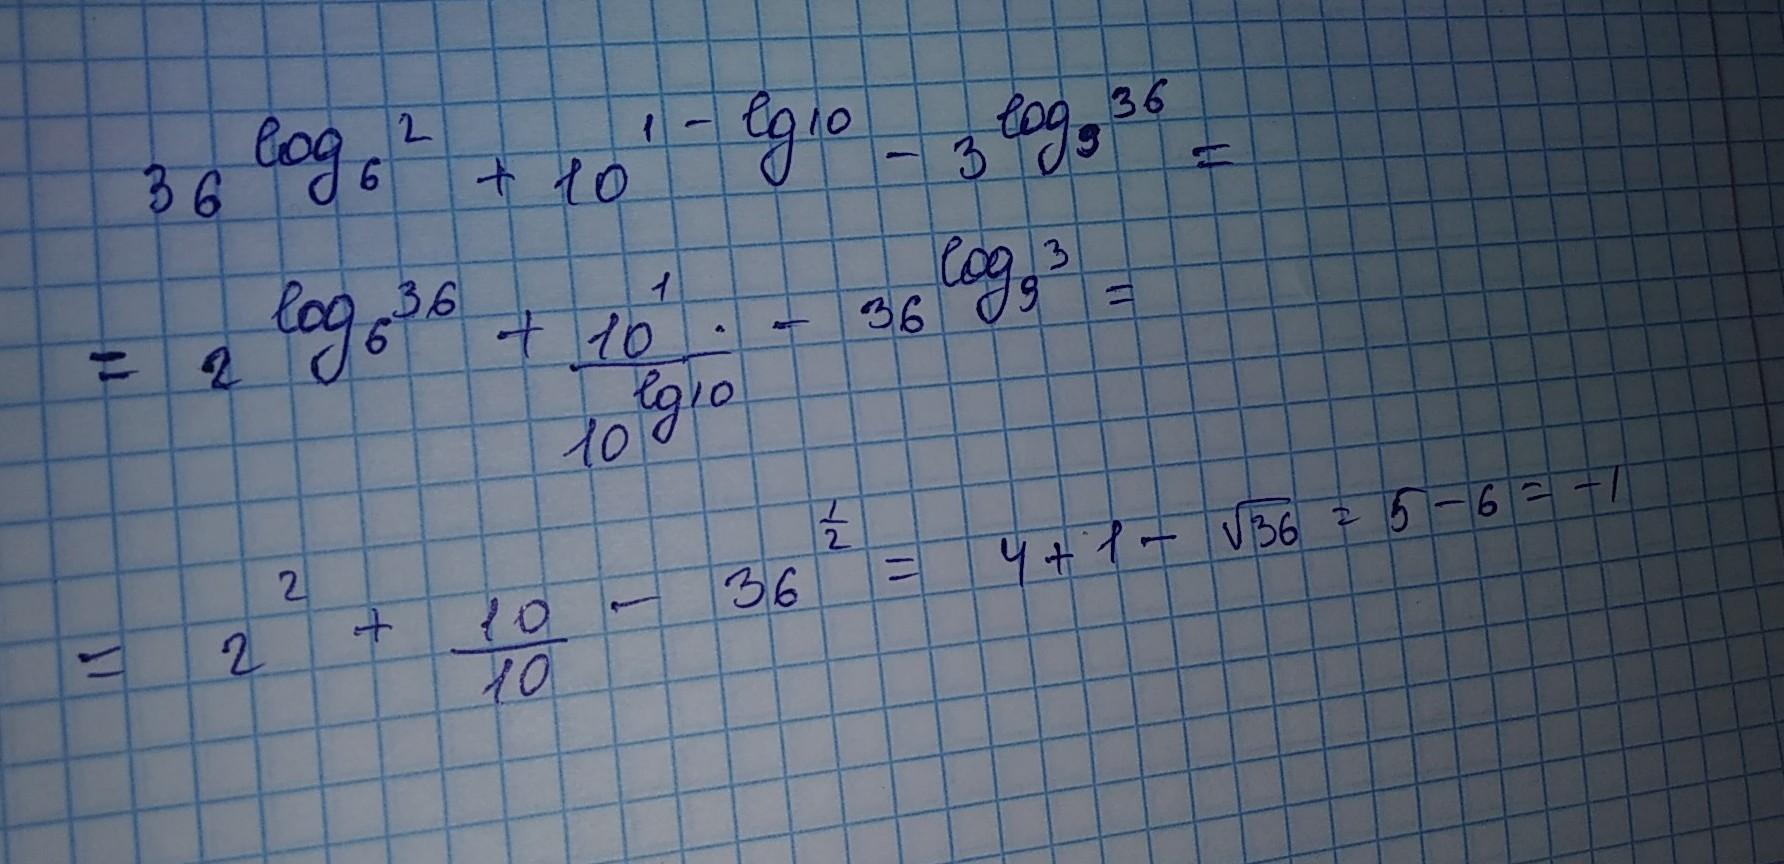 36^{log_6 2} + 10^{1 - lg10} - 3^{log_9 36} =
= 2^{log_6 36} + \frac{10^1 ·}{10^{lg10}} - 36^{log_9 3} =
= 2^2 + \frac{10}{10} - 36^{\frac{1}{2}} = 4 + 1 - √36 = 5 - 6 = -1